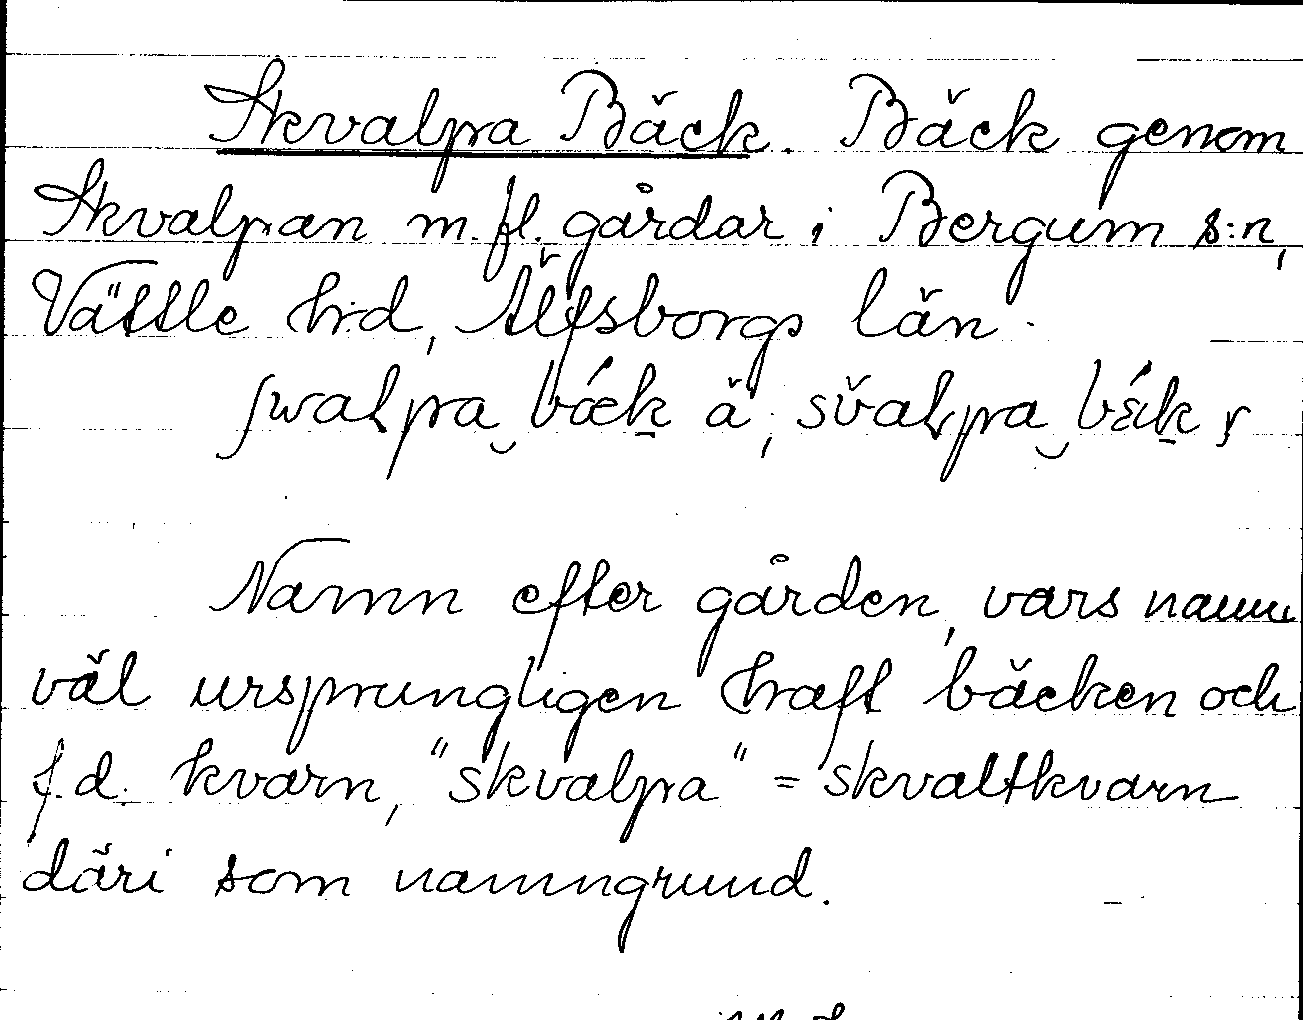 Skvalpa Bäck. Bäck genom
Skvalpan m.fl. gårdar i Bergum s:n,
Vättle h:d, Älfsborgs län.
Namn efter gården, vars namn
väl ursprungligen haft bäcken och
f.d. kvarn, "skvalpa" = skvaltkvarn
däri som namngrund.